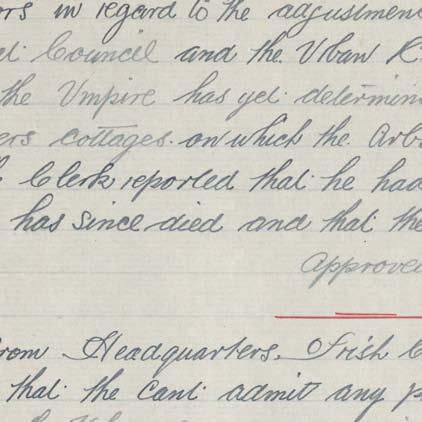 ors in regard to the adjustment
Council and the Urban
the Umpire has yet determin
ers cottages on which the Arb
Clerk reported that he had
has since died and that the
Approved
rom Headquarters, Irish
that the cant admit any p